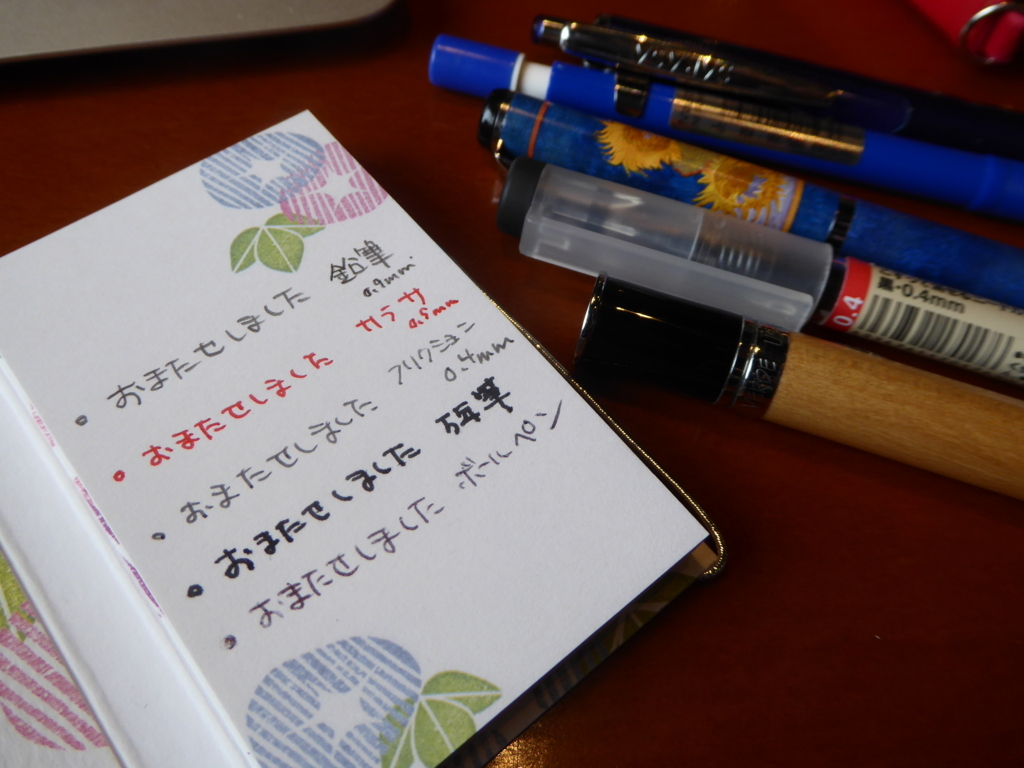 おまたせしました 鉛筆 0.9mm
おまたせしました サラサ 0.5mm
おまたせしました フリクション 0.4mm
おまたせしました 万年筆
おまたせしました ボールペン
0.4
黒-0.4mm